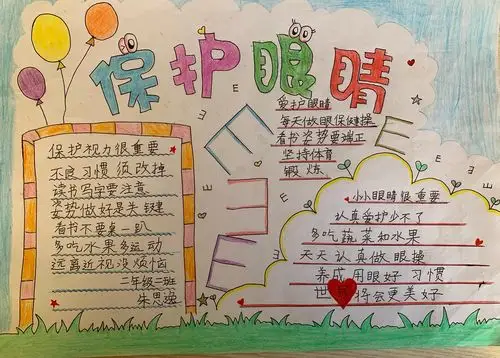 保护眼睛
保护视力很重要
不良习惯须改掉
读书写字要注意
姿势做好是关键
看书不要桌一趴
多吃水果多运动
远离近视没烦恼
二年级二班
爱护眼睛
每天做眼保健操
看书姿势要端正
坚持体育
锻炼
E
E
E
E
E
E
E
E
E
小小眼睛很重要
认真爱护少不了
多吃蔬菜和水果
天天认真做眼操
养成用眼好习惯
将会更美好